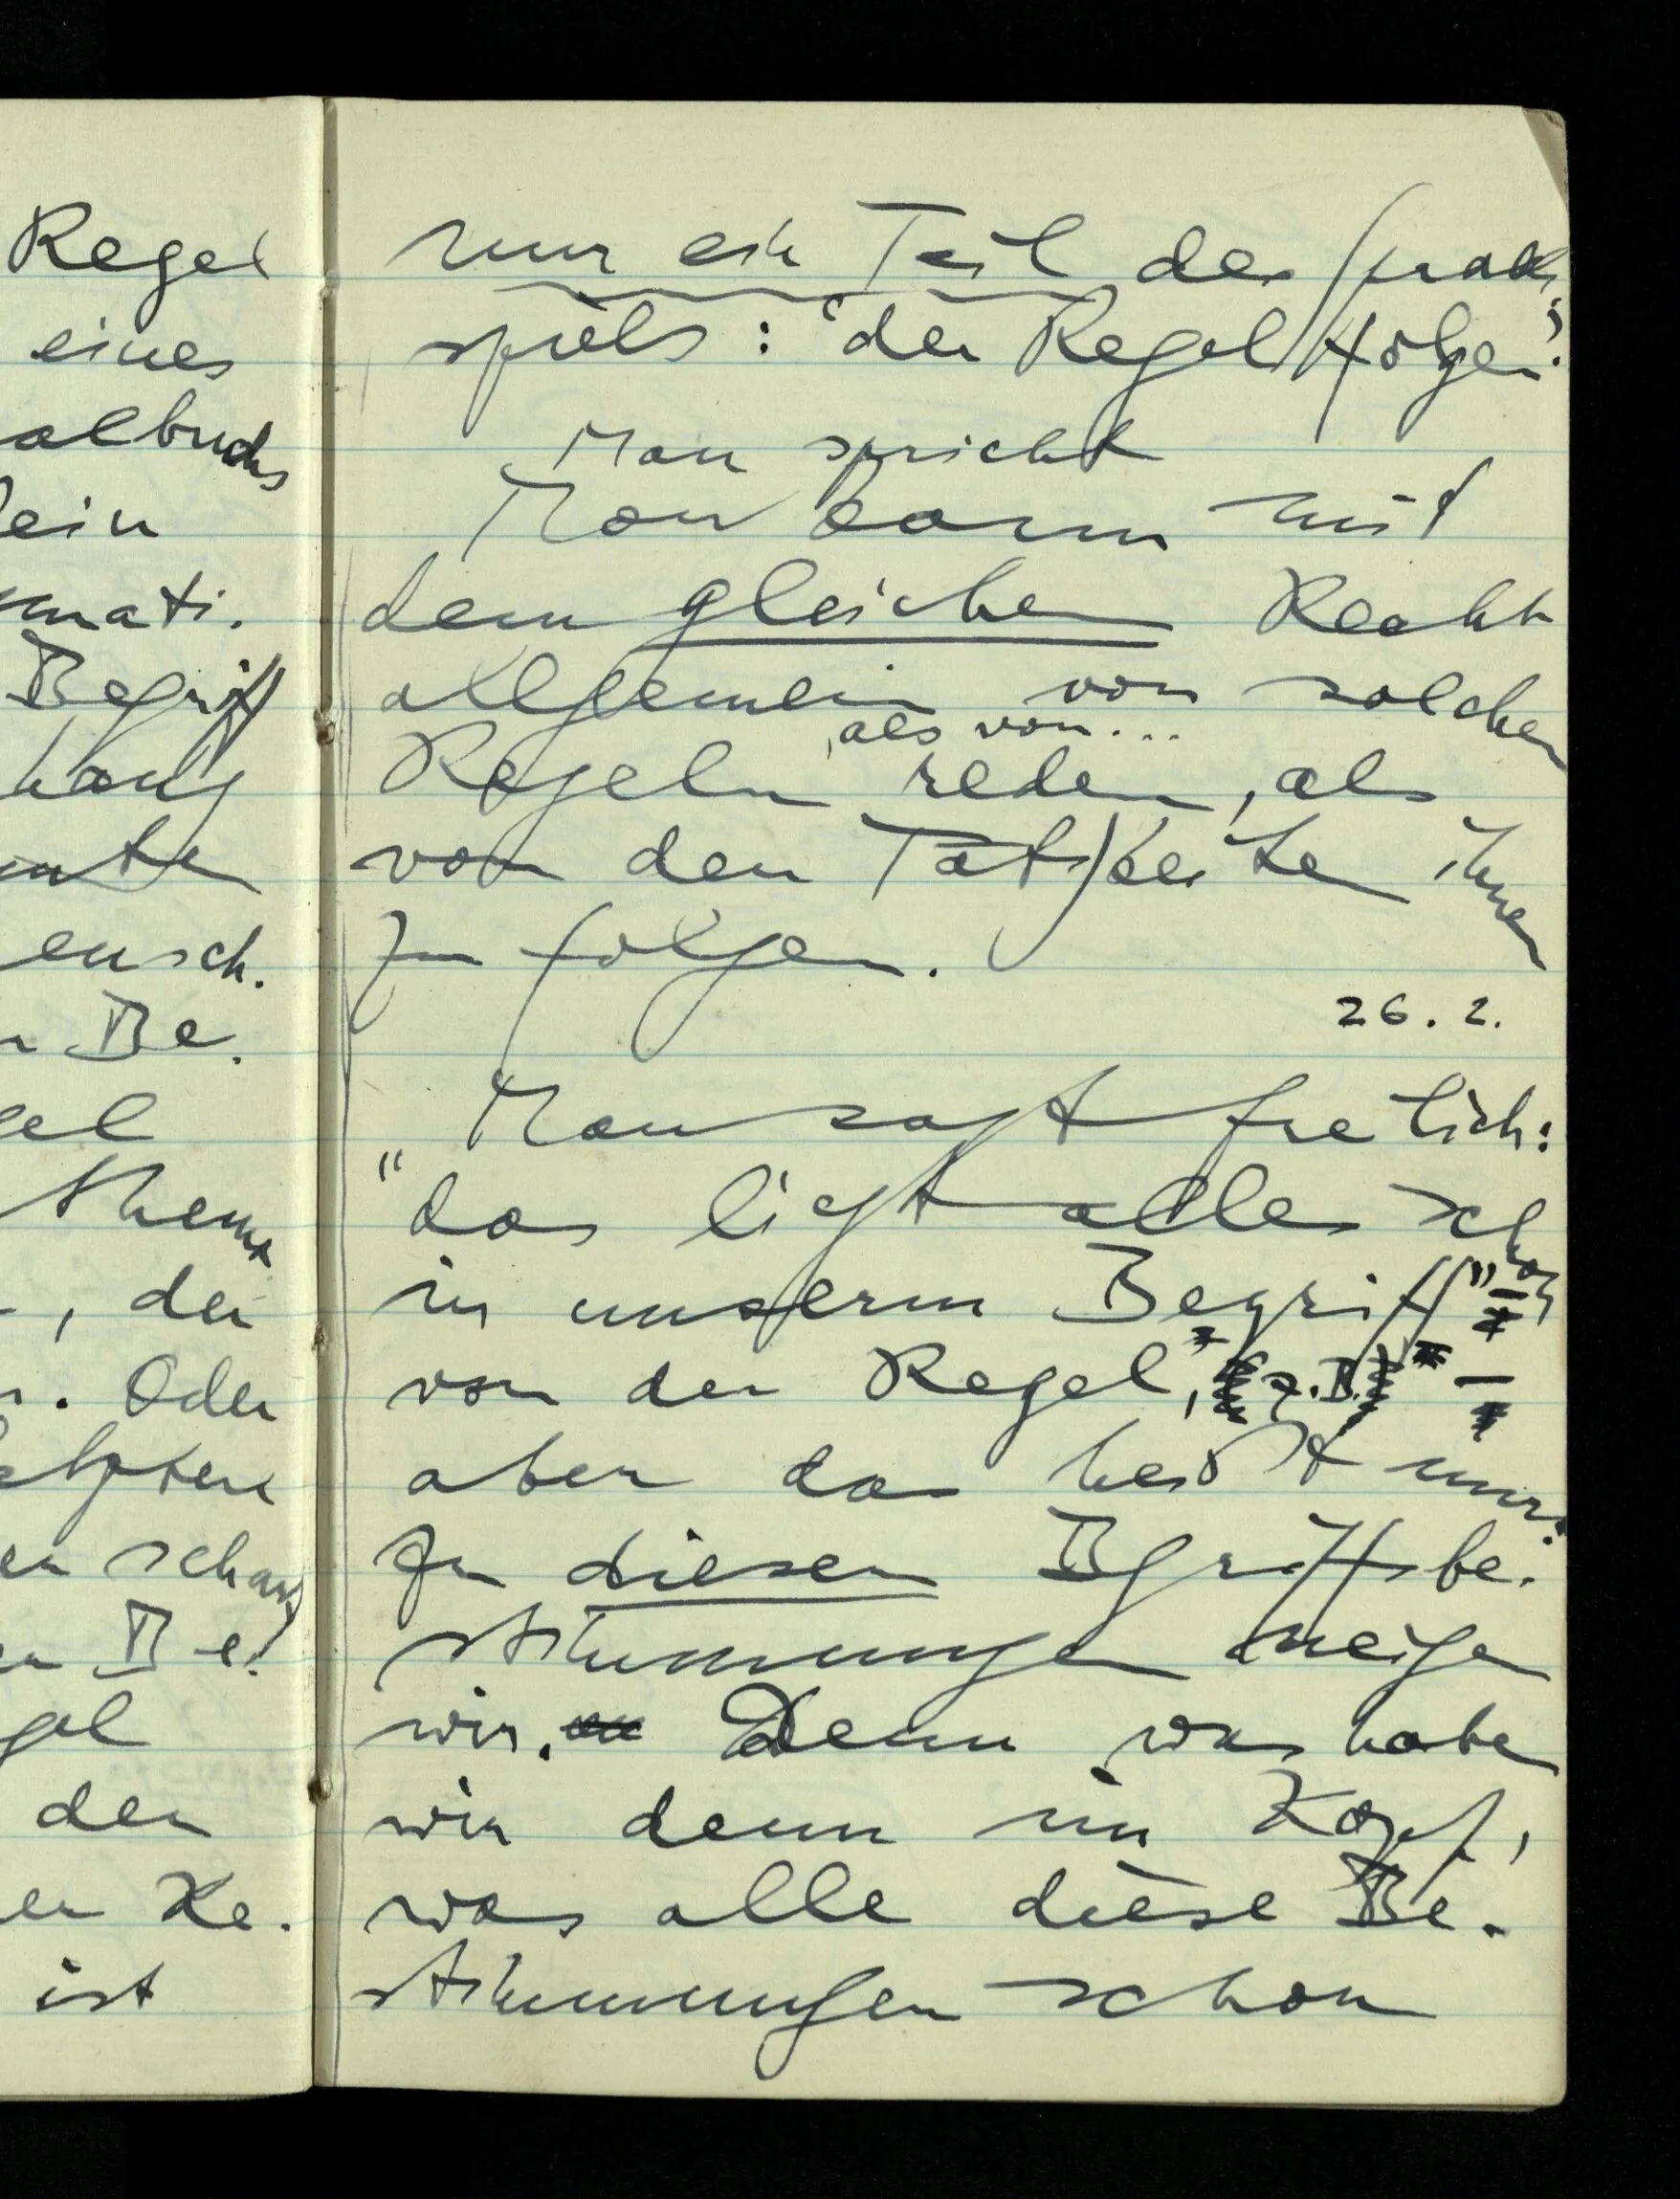 Regel
eines
albuchs
ein
mati-
Begriff
hang
ensch-
Be-
gel
, der
. Oder
schau
Be-
gel
der
er Ke-
ist
nur ein Teil des Sprach
spiels: ‘der Regel folgen’.
Man spricht
Man kann mit
dem gleichen Recht
allgemein von solchen
als von...
Regeln reden, als
von den Tätigkeiten ihnen
zu folgen.
26.2.
Man sagt freilich:
“das liegt alles schon
in unserm Begriff” –
von der Regel, z.B. –
aber das heißt nur:
zu diesen Bgriffsbe-
stimmungen neigen
wir. Denn was haben
wir denn im Kopf,
was alle diese Be-
stimmungen schon